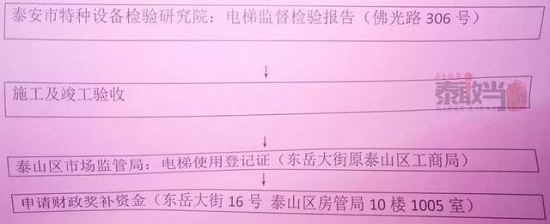 泰安市特种设备检验研究院：电梯监督检验报告（佛光路 306 号）
施工及竣工验收
泰敢当
泰山区市场监管局：电梯使用登记证（东岳大街原泰山区工商局）
申请财政奖补资金（东岳大街 16 号 泰山区房管局 10 楼 1005 室）